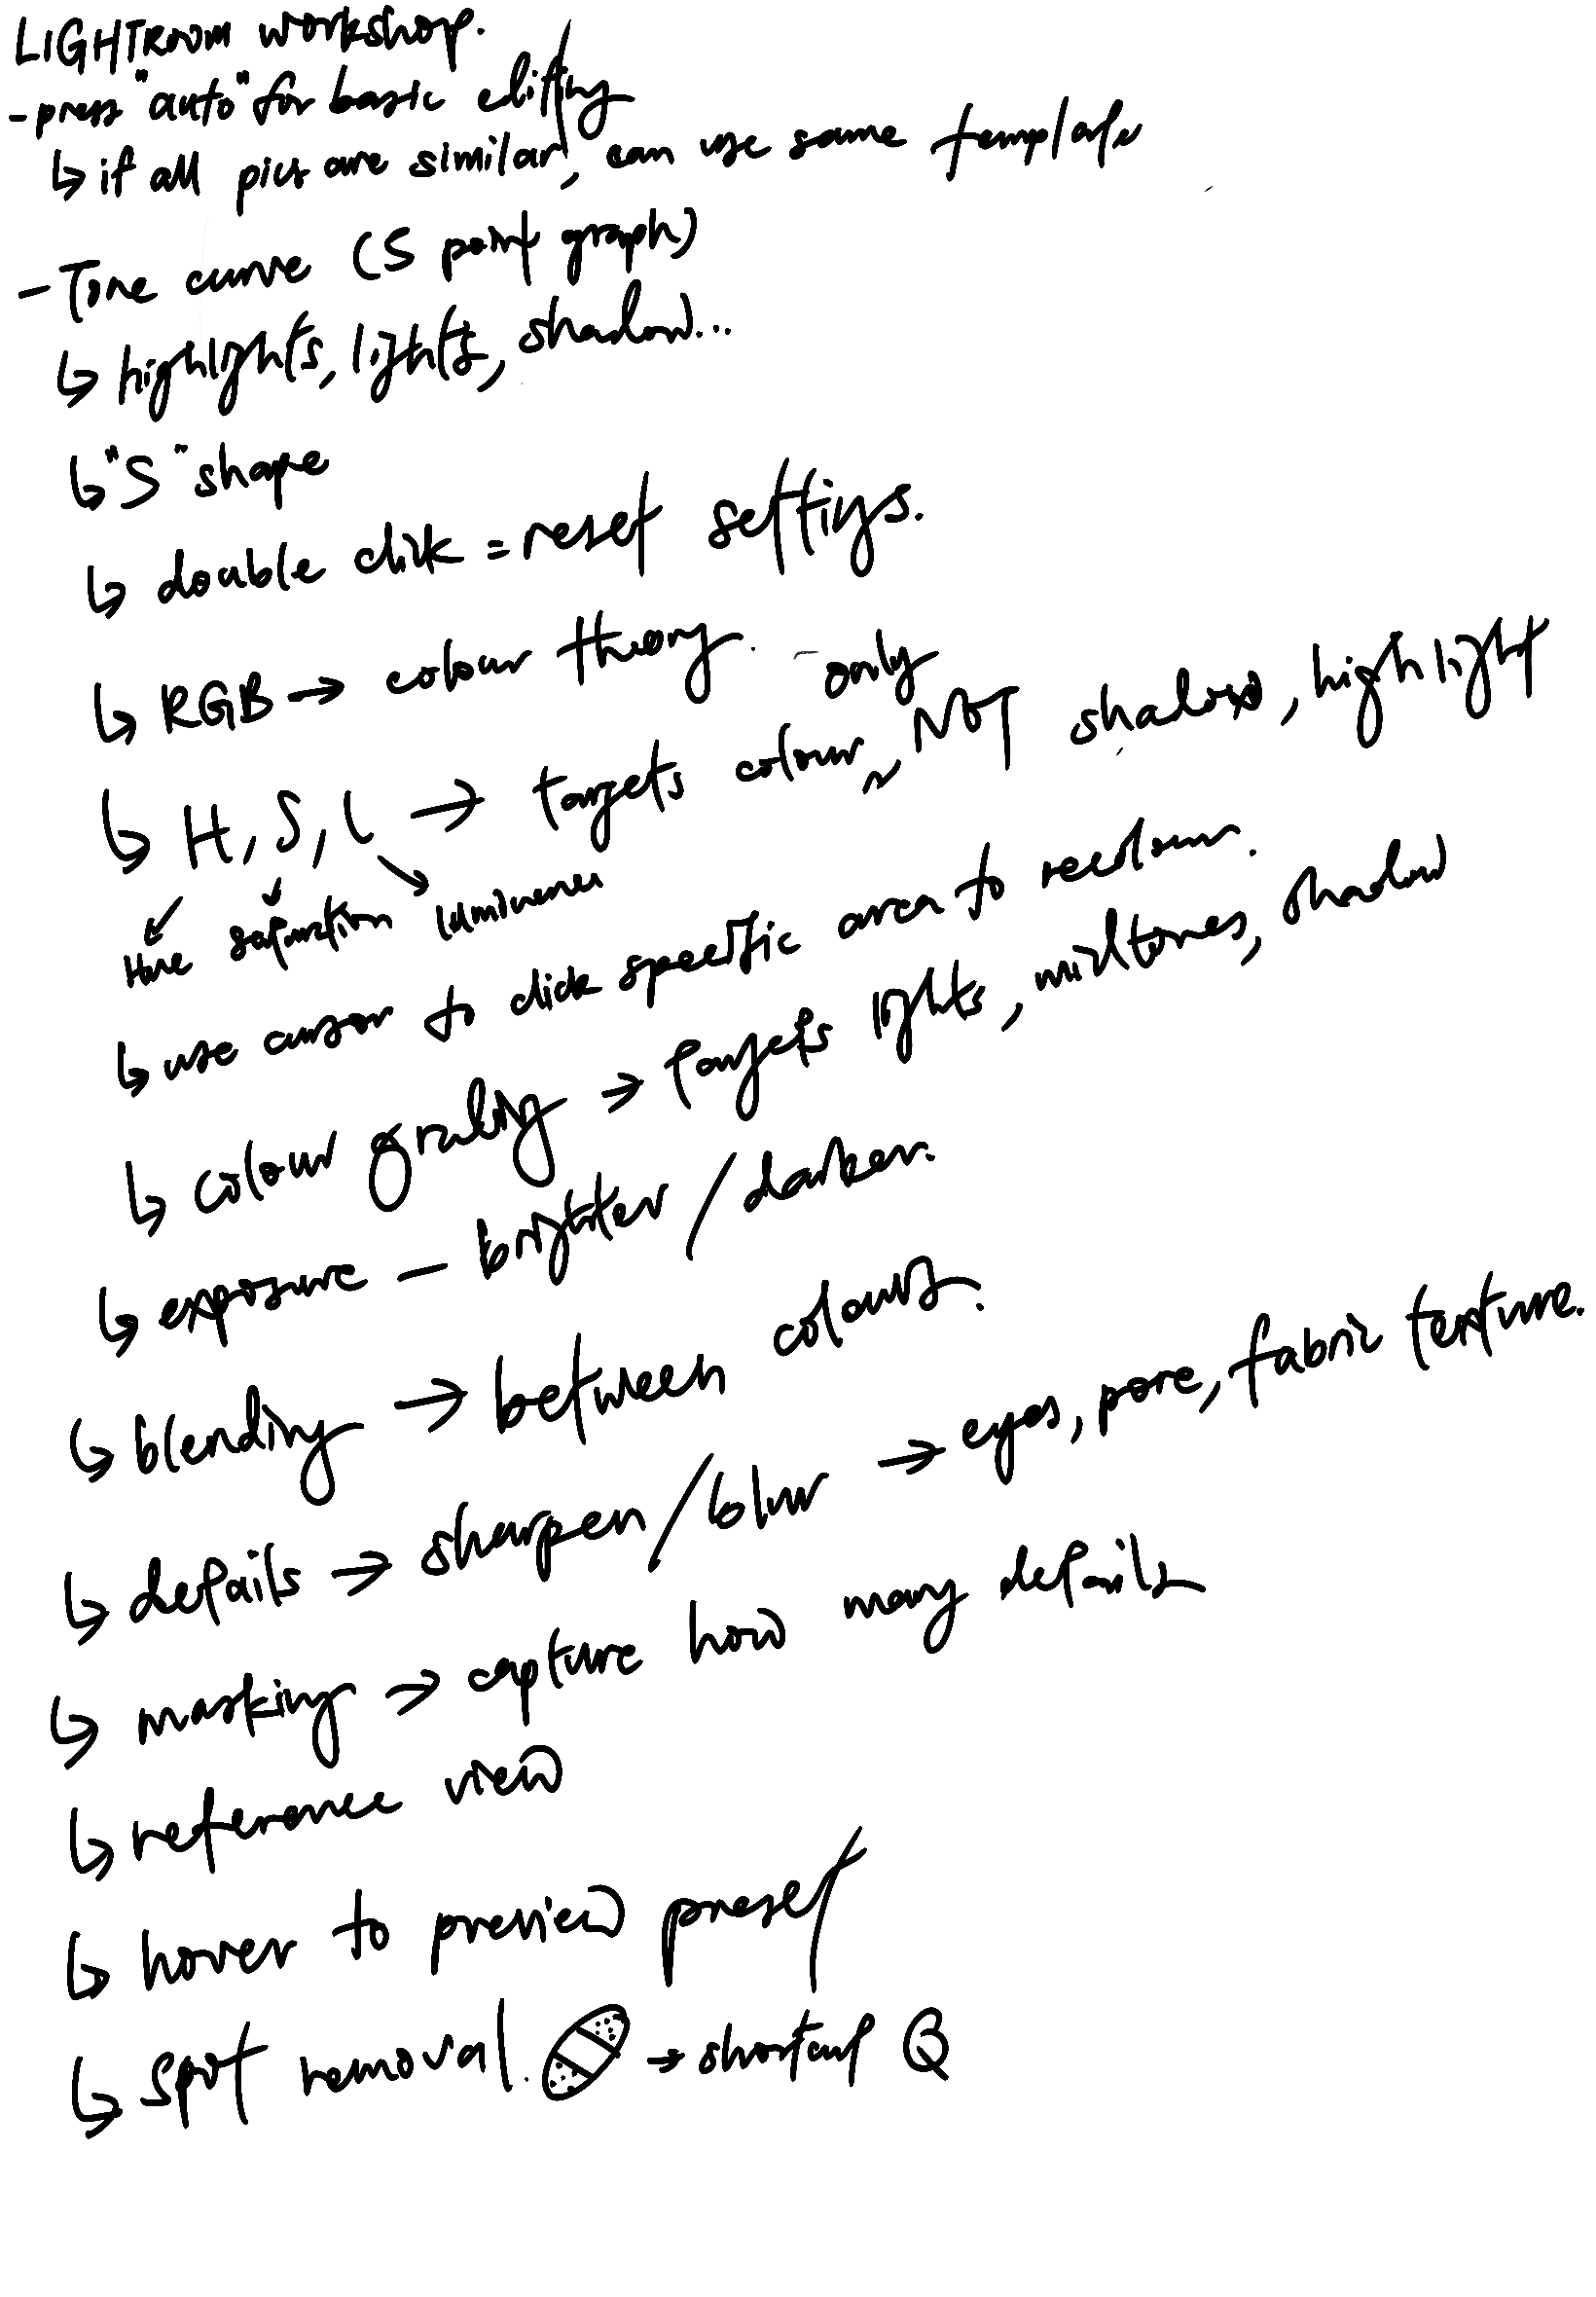 LIGHTROOM workshop.
- press "auto" for basic editing
↳ if all pics are similar, can use same template
- Tone curve (S point graph)
↳ highlights, lights, shadow...
↳ "S" shape
↳ double click = reset settings.
↳ RGB → colour theory.
↳ H, S, L → targets colour only, NOT shadows, highlight
Hue saturation luminance
↳ use cursor to click specific area to recolour.
↳ colour grading → targets lights, midtones, shadow
↳ exposure - brighter / darker.
↳ blending → between colours.
↳ details → sharpen / blur → eyes, pore, fabric texture.
↳ masking → capture how many details
↳ reference view
↳ hover to preview preset
↳ spot removal. → shortcut Q